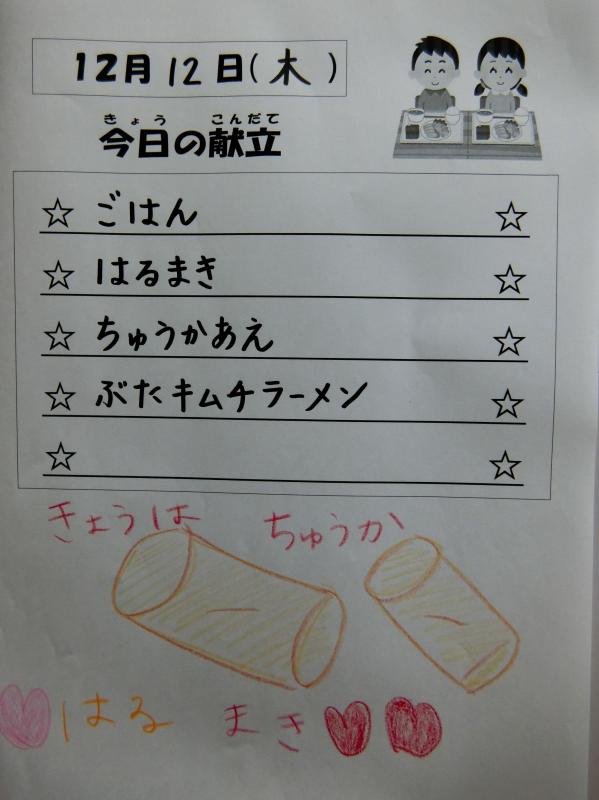 12月12日(木)
きょう こんだて
今日の献立
☆ ごはん ☆
☆ はるまき ☆
☆ ちゅうかあえ ☆
☆ ぶたキムチラーメン ☆
☆ ☆
きょうは ちゅうか
はるまき